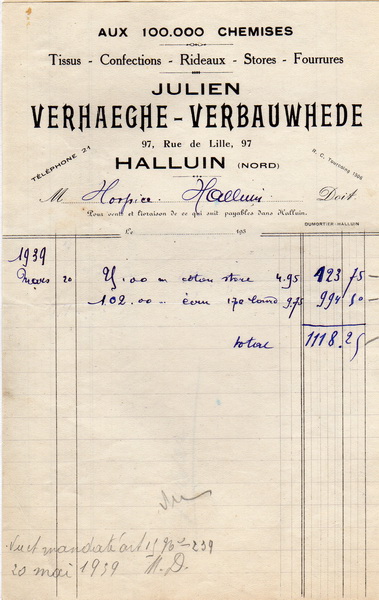 AUX 100.000 CHEMISES
Tissus - Confections - Rideaux - Stores - Fourrures
JULIEN
VERHAEGHE - VERBAUWHEDE
97, Rue de Lille, 97
HALLUIN (NORD)
TÉLÉPHONE 21
R. C. Tourcoing 1306
M Hospice Halluin Doit
Pour vente et livraison de ce qui suit payables dans Halluin.
DUMORTIER-HALLUIN
Le 193
1939
Mars 20 25.00 m coton store 4.95 123 75
102.00 m écru 9.75 994 50
total 1118.25
Vu
Vu et mandaté art
20 mai 1939